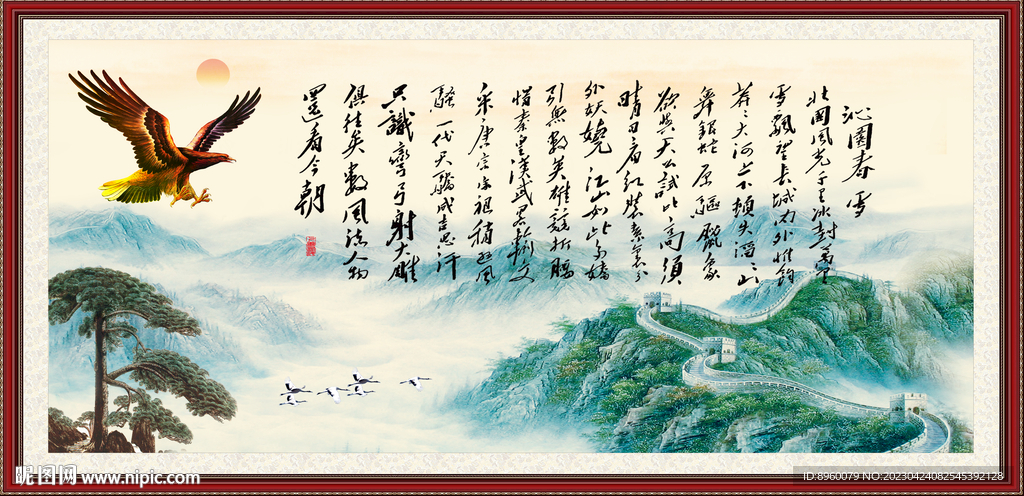 沁園春 雪
北國風光千里冰封萬里
雪飄望長城內外惟餘
莽〻大河上下頓失滔〻山
舞銀蛇原驅蠟象
欲與天公試比高須
晴日看紅裝素裹分
外妖嬈江山如此多嬌
引無數英雄競折腰
惜秦皇漢武略輸文
采唐宗宋祖稍遜風
騷一代天驕成吉思汗
只識彎弓射大雕
俱往矣數風流人物
還看今朝
昵图网 www.nipic.com
ID:8960079 NO:20230424082545392128